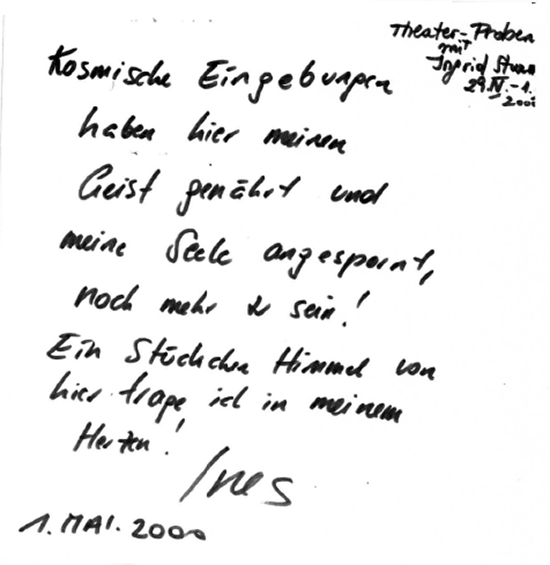 Theater-Proben
mit
Ingrid
29.IV.-1.
2000
Kosmische Eingebungen
haben hier meinen
Geist genährt und
meine Seele angespornt,
noch mehr zu sein!
Ein Stückchen Himmel von
hier trage ich in meinem
Herzen!
Ines
1. MAI. 2000